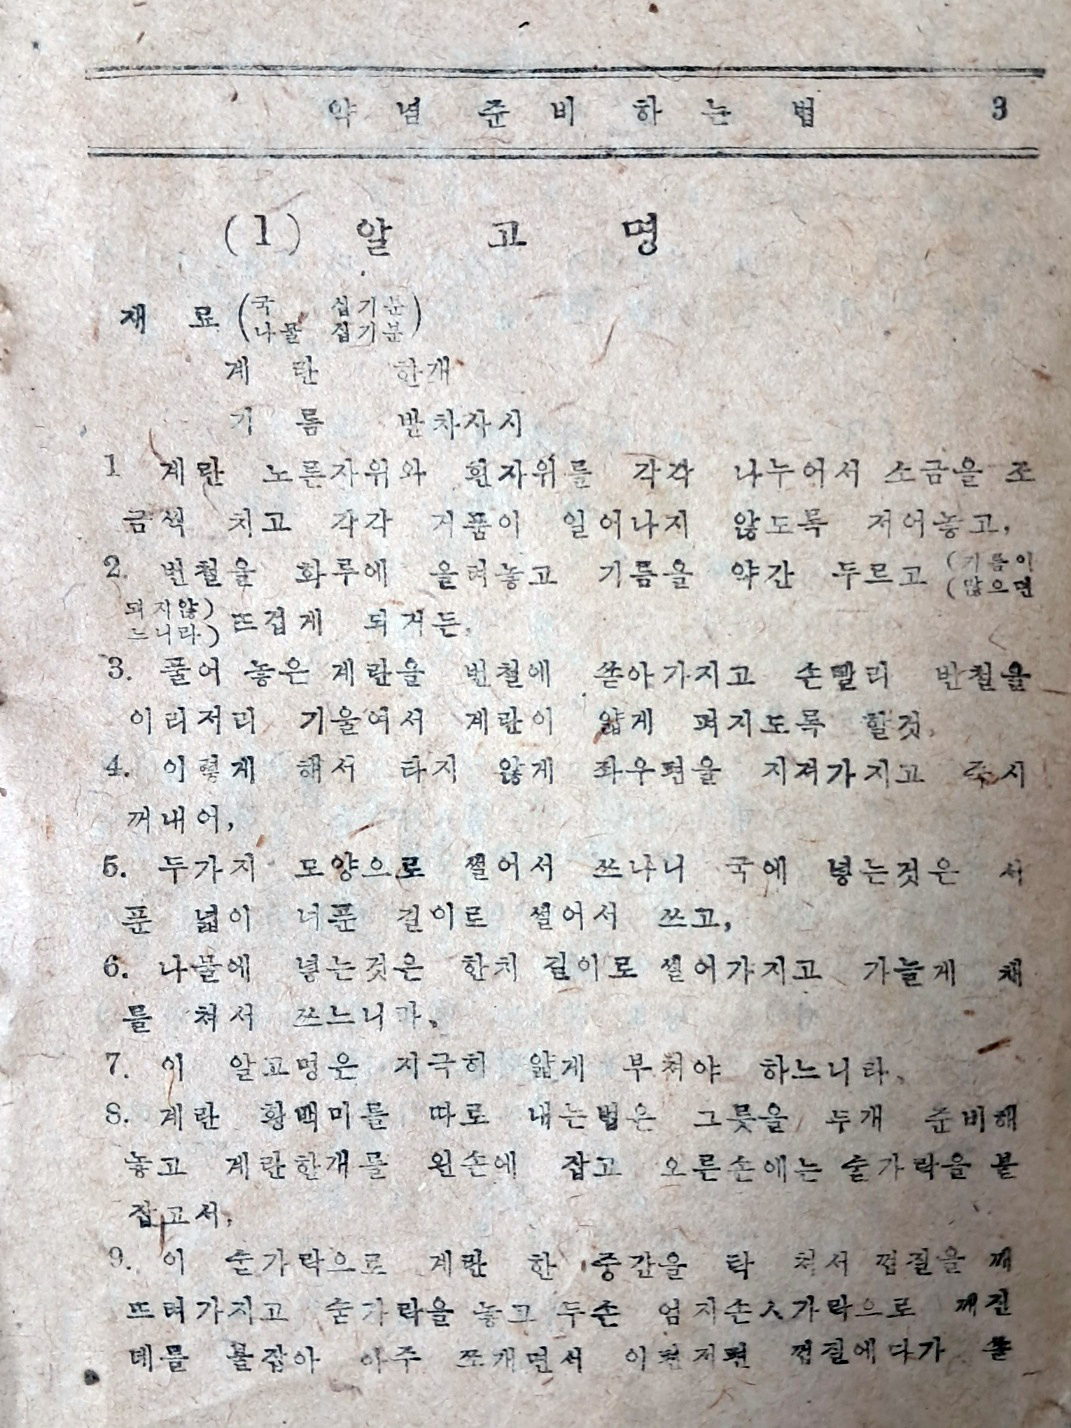 약념준비하는법 3
(1) 알고명
재 료 (국 십기분
나물 접기분)
계 란 한개
기 름 반차사시
1 계란 노른자위와 흰자위를 각각 나누어서 소금을 조
금씩 치고 각각 거품이 일어나지 않도록 저어놓고,
2. 번철을 화루에 올려놓고 기름을 약간 두르고 (기름이
(많으면
되지않)
느니라) 뜨겁게 되거든,
3. 풀어 놓은 계란을 번철에 쏟아가지고 손빨리 반철을
이리저리 기울여서 계란이 얇게 펴지도록 할것,
4. 이렇게 해서 타지 않게 좌우편을 지져가지고 즉시
꺼내어,
5. 두가지 모양으로 썰어서 쓰나니 국에 넣는것은 서
푼 넓이 너푼 길이로 썰어서 쓰고,
6. 나물에 넣는것은 한치 길이로 썰어가지고 가늘게 채
를 쳐서 쓰느니라,
7. 이 알고명은 지극히 얇게 부쳐야 하느니라,
8. 계란 황백미를 따로 내는법은 그릇을 두개 준비해
놓고 계란한개를 왼손에 잡고 오른손에는 숟가락을 붙
잡고서,
9. 이 숟가락으로 계란 한 중간을 탁 쳐서 껍질을 깨
뜨려가지고 숟가락을 놓고 두손 엄지손人가락으로 깨진
데를 붙잡아 아주 쪼개면서 이편저편 껍질에다가